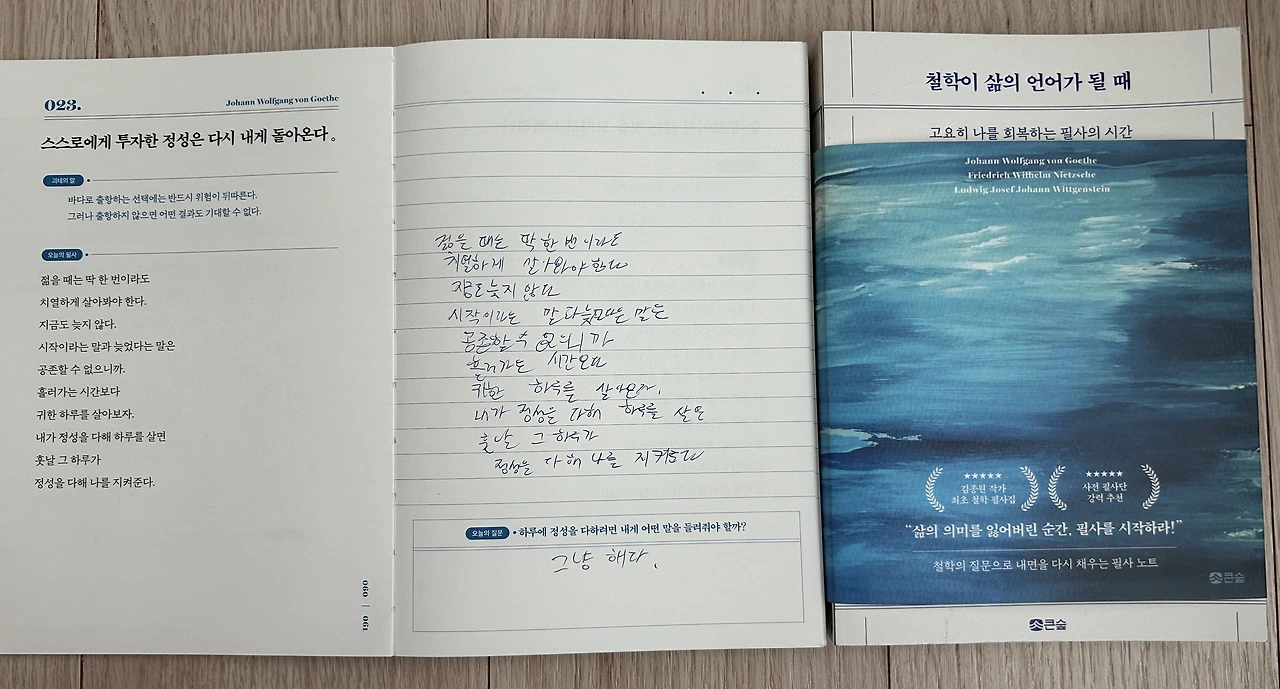 023.
Johann Wolfgang von Goethe
스스로에게 투자한 정성은 다시 내게 돌아온다.
괴테의 말
바다로 출항하는 선택에는 반드시 위험이 뒤따른다.
그러나 출항하지 않으면 어떤 결과도 기대할 수 없다.
오늘의 필사
젊을 때는 딱 한 번이라도
치열하게 살아봐야 한다.
지금도 늦지 않다.
시작이라는 말과 늦었다는 말은
공존할 수 없으니까.
흘러가는 시간보다
귀한 하루를 살아보자.
내가 정성을 다해 하루를 살면
훗날 그 하루가
정성을 다해 나를 지켜준다.
060 | 061
젊을 때는 딱 한 번이라도
치열하게 살아봐야 한다
늦지 않다
시작이라는 말과 늦었다는 말은
공존할 수 없으니까
흘러가는 시간보다
귀한 하루를 살아보자.
내가 정성을 다해 하루를 살면
훗날 그 하루가
정성을 다해 나를 지켜준다
오늘의 질문
하루에 정성을 다하려면 내게 어떤 말을 들려줘야 할까?
그냥 해라.
철학이 삶의 언어가 될 때
고요히 나를 회복하는 필사의 시간
Johann Wolfgang von Goethe
Friedrich Wilhelm Nietzsche
Ludwig Josef Johann Wittgenstein
★★★★★
김종원 작가
최초 철학 필사집
★★★★★
사전 필사단
강력 추천
“삶의 의미를 잃어버린 순간, 필사를 시작하라!”
철학의 질문으로 내면을 다시 채우는 필사 노트
큰숲
큰숲